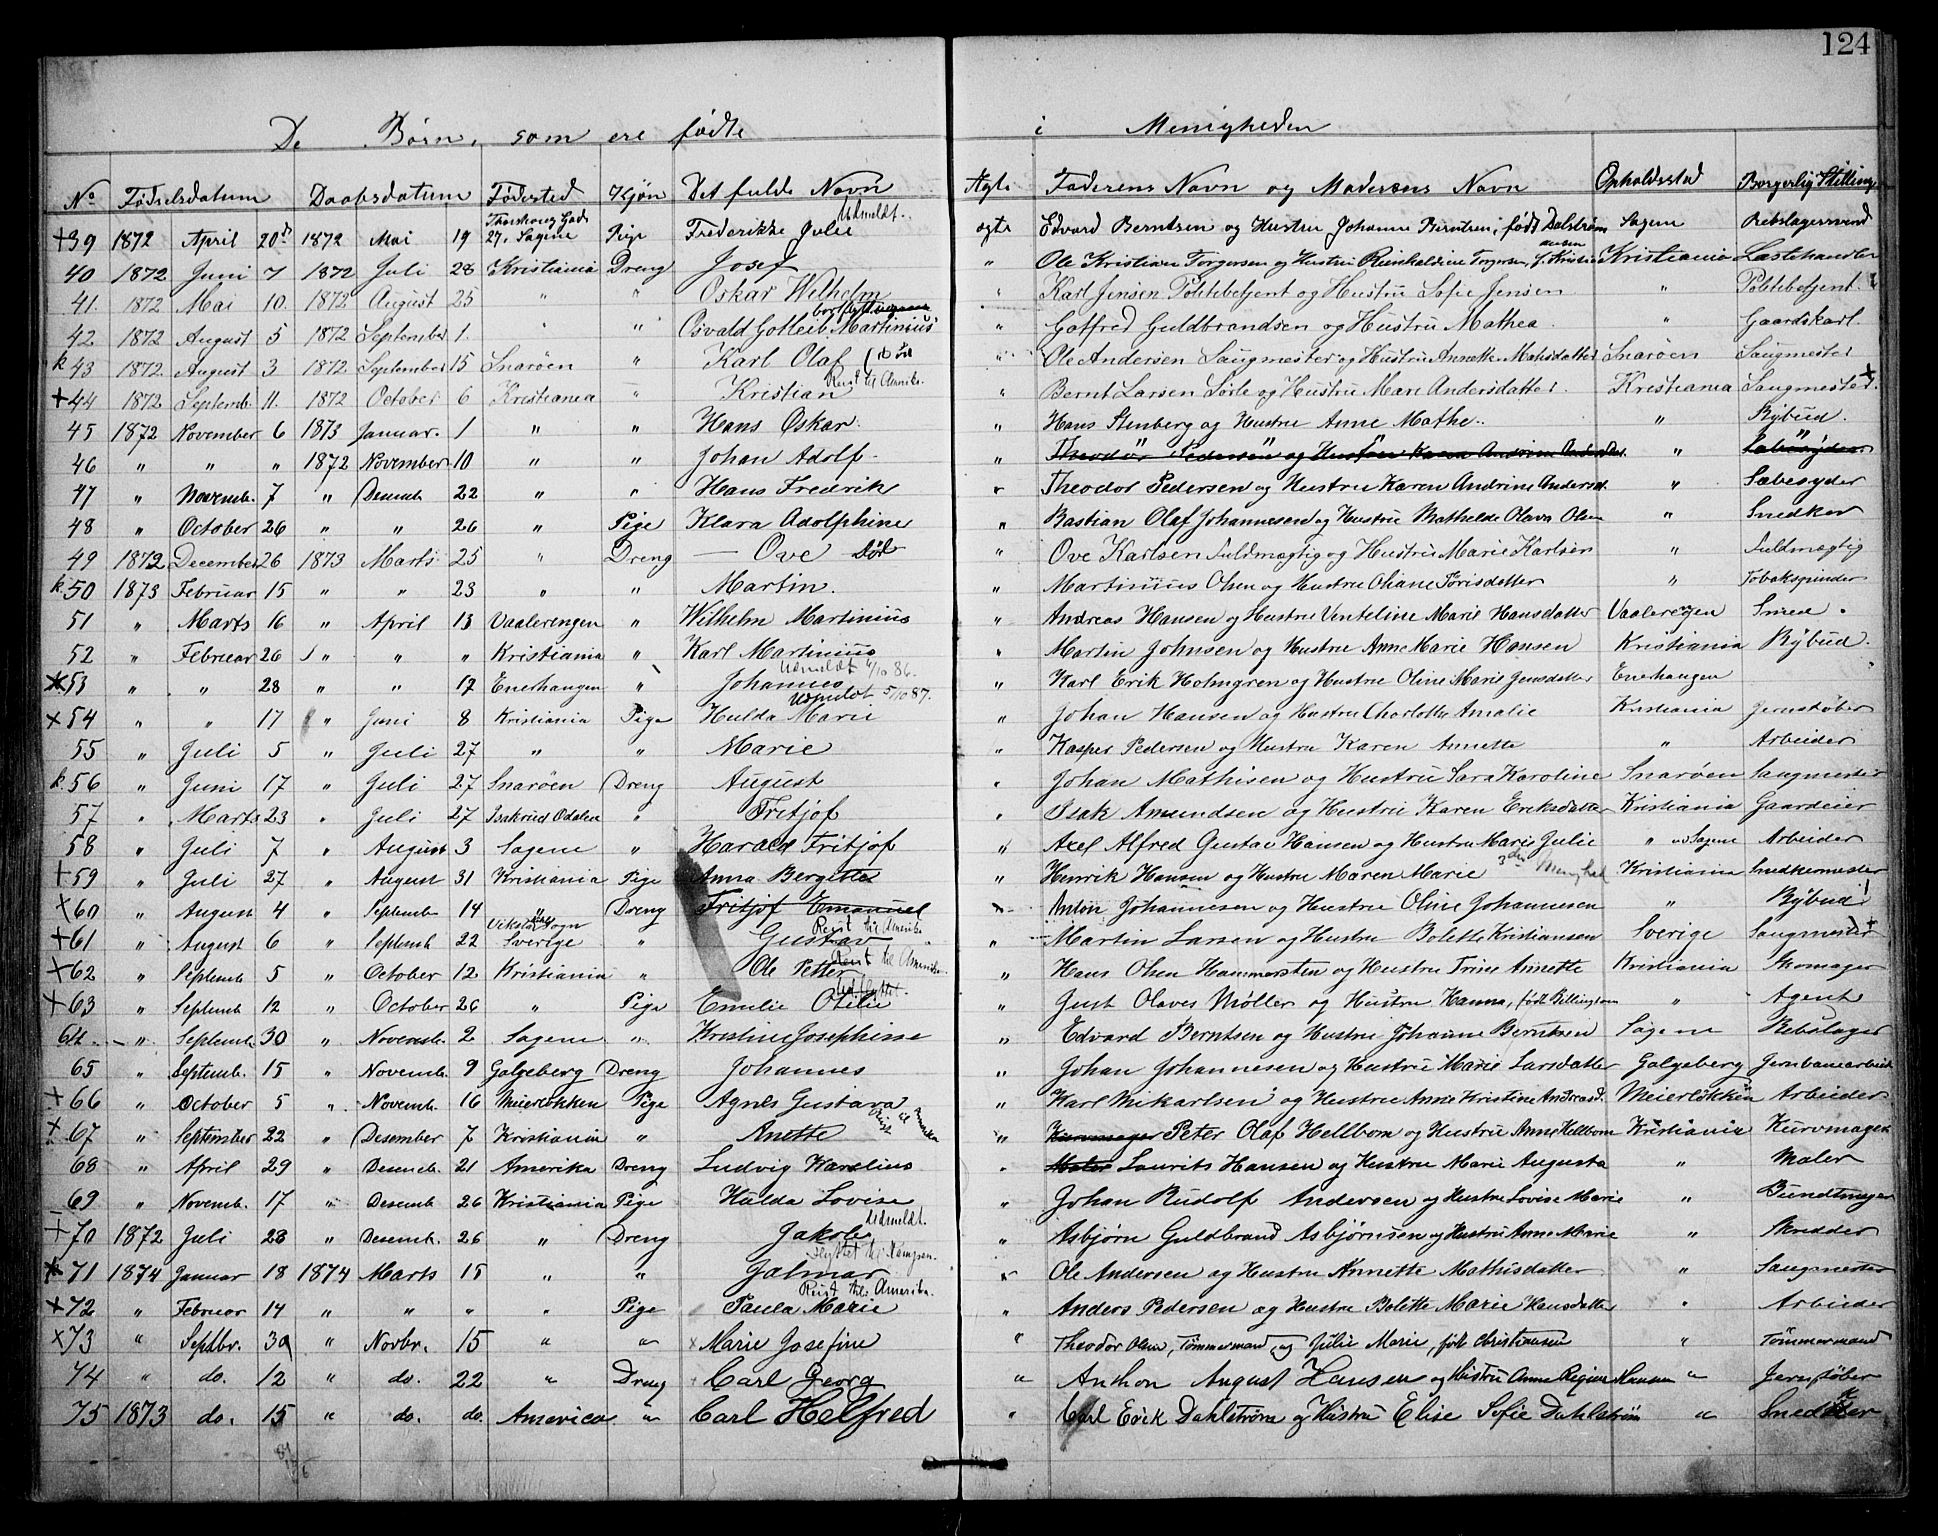 124
De Børn, som ere fødte i Menigheden
No Fødselsdatum Daabsdatum Fødested Kjøn Det fulde Navn Ægte Faderens Navn og Moderens Navn Opholdssted Borgerlig Stilling
Udmeldt.
+39 1872 April 20d 1872 Mai 19 27, Sagene Pige Frederikke Julie ægte Edvard Berntsen og Hustru Johanne Berntsen, født Dalstrøm Sagene Rebslagersvend
40 1872 Juni 7 1872 Juli 28 Kristiania Dreng Josef " Ole Kristian Torgersen og Hustru Reinholdine Torgersen, f. Kristiansen Kristiania Læstehandler
41. 1872 Mai 10. 1872 August 25 " " Oskar Wilhelm " Karl Jensen Politibetjent og Hustru Sofie Jensen " Politibetjent.
42 1872 August 5 1872 September 1. " " Osvald Gotleib Martinius " Gotfred Guldbrandsen og Hustru Mathea. " Gaardskarl.
k 43 1872 August 3 1872 September 15 Snarøen " Karl Olaf (død " Ole Andersen Saugmester og Hustru Annette Mathisdatter Snarøen Saugmester
Reist til Amerika.
+44 1872 Septemb. 11. 1872 October 6 Kristiania " Kristian " Bernt Larsen Sørle og Hustru Mari Andersdatter. Kristiania Saugmester
45 1872 November 6 1873 Januar. 1 " " Hans Oskar. " Hans Stenberg og Hustru Anne Mathe.. " Bybud.
46 " " " 1872 November 10 " " Johan Adolf. " Theodor Pedersen og Hustru Karen Andrine Andersdat. " Sæbesyder
47 " Novemb. 7 " Desemb. 22 " " Hans Fredrik " Theodor Pedersen og Hustru Karen Andrine Andersd. " Sæbesyder
48 " October 26 " " 26 " Pige Klara Adolphine " Bastian Olaf Johannesen og Hustru Mathelde Olava Olsen " Snedker
49 1872 December 26 1873 Marts 25 " Dreng — Ove Død " Ove Karlsen Fuldmægtig og Hustru Marie Karlsen " Fuldmægtig
k.50 1873 Februar 15 " " 23 " " Martin. " Martinius Olsen og Hustru Oliane Torisdatter " Tobakspinder
51 " Marts 16 " April 13 Vaalerengen " Wilhelm Martinius " Andreas Hansen og Hustru Venteline Marie Hansdatter Vaalerengen Smed.
52 " Februar 26 " " " Kristiania " Karl Martinius " Martin Johnsen og Hustru Anne Marie Hansen Kristiania Bybud.
Udmeldt 4/10 86.
k53 " " 28 " " 17 Enerhaugen " Johannes " Karl Erik Holmgren og Hustru Oline Marie Jensdatter Enerhaugen
Udmeldt 5/10 87.
x54 " " 17 " Juni 8 Kristiania Pige Hulda Marie " Johan Hansen og Hustru Charlotte Amalie Kristiania Jernstøber
55 " Juli 5 " Juli 27 " " Marie " Kasper Pedersen og Hustru Karen Annette " Arbeider
k.56 " Juni 17 " Juli 27 Snarøen Dreng August " Johan Mathisen og Hustru Sara Karoline Snarøen Saugmester
57 " Marts 23 " Juli 27 Odalen " Fritjof " Isak Amundsen og Hustru Karen Eriksdatter Kristiania Gaardeier
58 " Juli 7 " August 3 Sagene " Harald Fritjof " Axel Alfred Gustav Hansen og Hustru Marie Julie " Sagene Arbeider
+59 " Juli 27 " August 31 Kristiania Pige Anna Bergitte " Henrik Hansen og Hustru Maren Marie 3die Menighed Kristiania Snedkermester
x60 " August 4 " Septemb. 14 " Dreng Fritjof Emanuel " Anton Johannesen og Hustru Oline Johannesen " Bybud!
Reist til Amerika
+61 " August 6 " Septemb. 22 Sverige " Gustav " Martin Larsen og Hustru Bolette Kristiansen Sverige Saugmester
Reist til Amerika.
+62 " Septemb. 5 " October 12 Kristiania " Ole Petter " Hans Olsen Hammersten og Hustru Trine Annette Kristiania Skomager
Udflyttet.
+63 " Septemb. 12 " October 26 " Pige Emilie Otilie " Just Olaves Møller og Hustru Hanna, født Billington " Agent
64 " Septemb. 30 " Novemb. 2 Sagene " Kristine Josephine " Edvard Berntsen og Hustru Johanne Berntsen Sagene Rebslager
65 " Septemb. 15 " Novemb. 9 Galgeberg Dreng Johannes " Johan Johannesen og Hustru Marie Larsdatter Galgeberg Jernbanearbeid
+66 " October 5 " Novemb. 16 Meierløkken Pige Agnes Gustava " Karl Mikarlsen og Hustru Anne Kristine Andersd. Meierløkken Arbeider
Reist til Amerika
+67 " September 22 " Desember 7 Kristiania " Anette " Kurvmager Peter Olaf Hellbom og Hustru Anne Hellbom Kristiania Kurvmager
68 " April 29 " Desemb. 21 Amerika Dreng Ludvig Karelius " Maler Laurits Hansen og Hustru Marie Augusta " Maler
69 " Novemb. 17 " Desemb. 26 Kristiania Pige Hulda Lovise " Johan Rudolf Andersen og Hustru Lovise Marie " Bundtmager
Udmeldt.
+70 1872 Juli 23 " Desemb. 26 " Dreng Jakob " Asbjørn Guldbrand Asbjørnsen og Hustru Anne Marie " Skredder
flyttet til Kampen.
k71 1874 Januar 18 1874 Marts 15 " " Jalmar " Ole Andersen og Hustru Annette Mathisdatter " Saugmester
Reist til Amerika.
x72 " Februar 14 " " " " Pige Paula Marie " Anders Pedersen og Hustru Bolette Marie Hansdatter " Arbeider
x73 " Septbr. 30 " Novbr. 15 " " Marie Josefine " Theodor Olsen, Tømmermand, og Julie Marie, født Christiansen " Tømmermand
74 " do. 12 " do. 22 " Dreng Carl Georg " Anthon August Hansen og Hustru Anne Regine Hansen " Jernstøber
75 1873 do. 15 " do. do. America " Carl Helfred " Carl Erik Dahlstrøm og Hustru Elise Sofie Dahlstrøm " Snedker